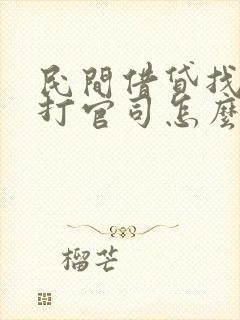 民間借貸找
打官司怎麼
榴芒